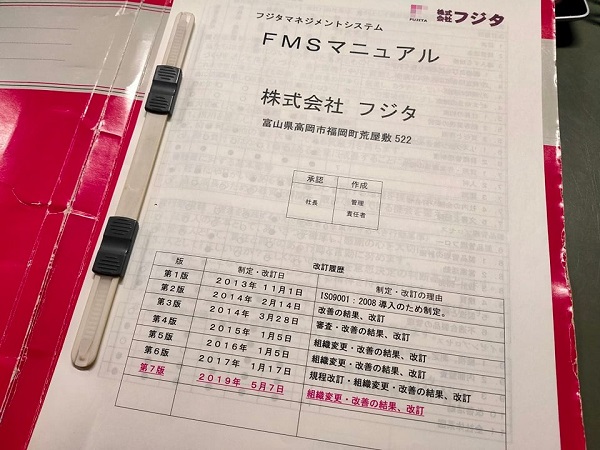 FUJITA
株式会社 フジタ
フジタマネジメントシステム
FMSマニュアル
株式会社 フジタ
富山県高岡市福岡町荒屋敷522
承認 作成
社長 管理責任者
改訂履歴
版 制定・改訂日 制定・改訂の理由
第1版 2013年 11月1日 ISO9001:2008導入のため制定。
第2版 2014年 2月14日 改善の結果、改訂
第3版 2014年 3月28日 審査・改善の結果、改訂
第4版 2015年 1月5日 組織変更・改善の結果、改訂
第5版 2016年 1月5日 組織変更・改善の結果、改訂
第6版 2017年 1月17日 規程改訂・組織変更・改善の結果、改訂
第7版 2019年 5月7日 組織変更・改善の結果、改訂